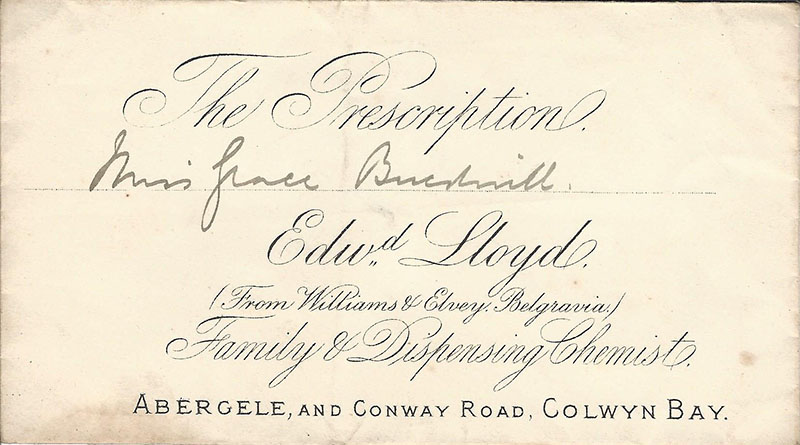 The Prescription.
Miss Grace
Edwd Lloyd.
(From Williams & Elvey, Belgravia.)
Family & Dispensing Chemist.
ABERGELE, AND CONWAY ROAD, COLWYN BAY.